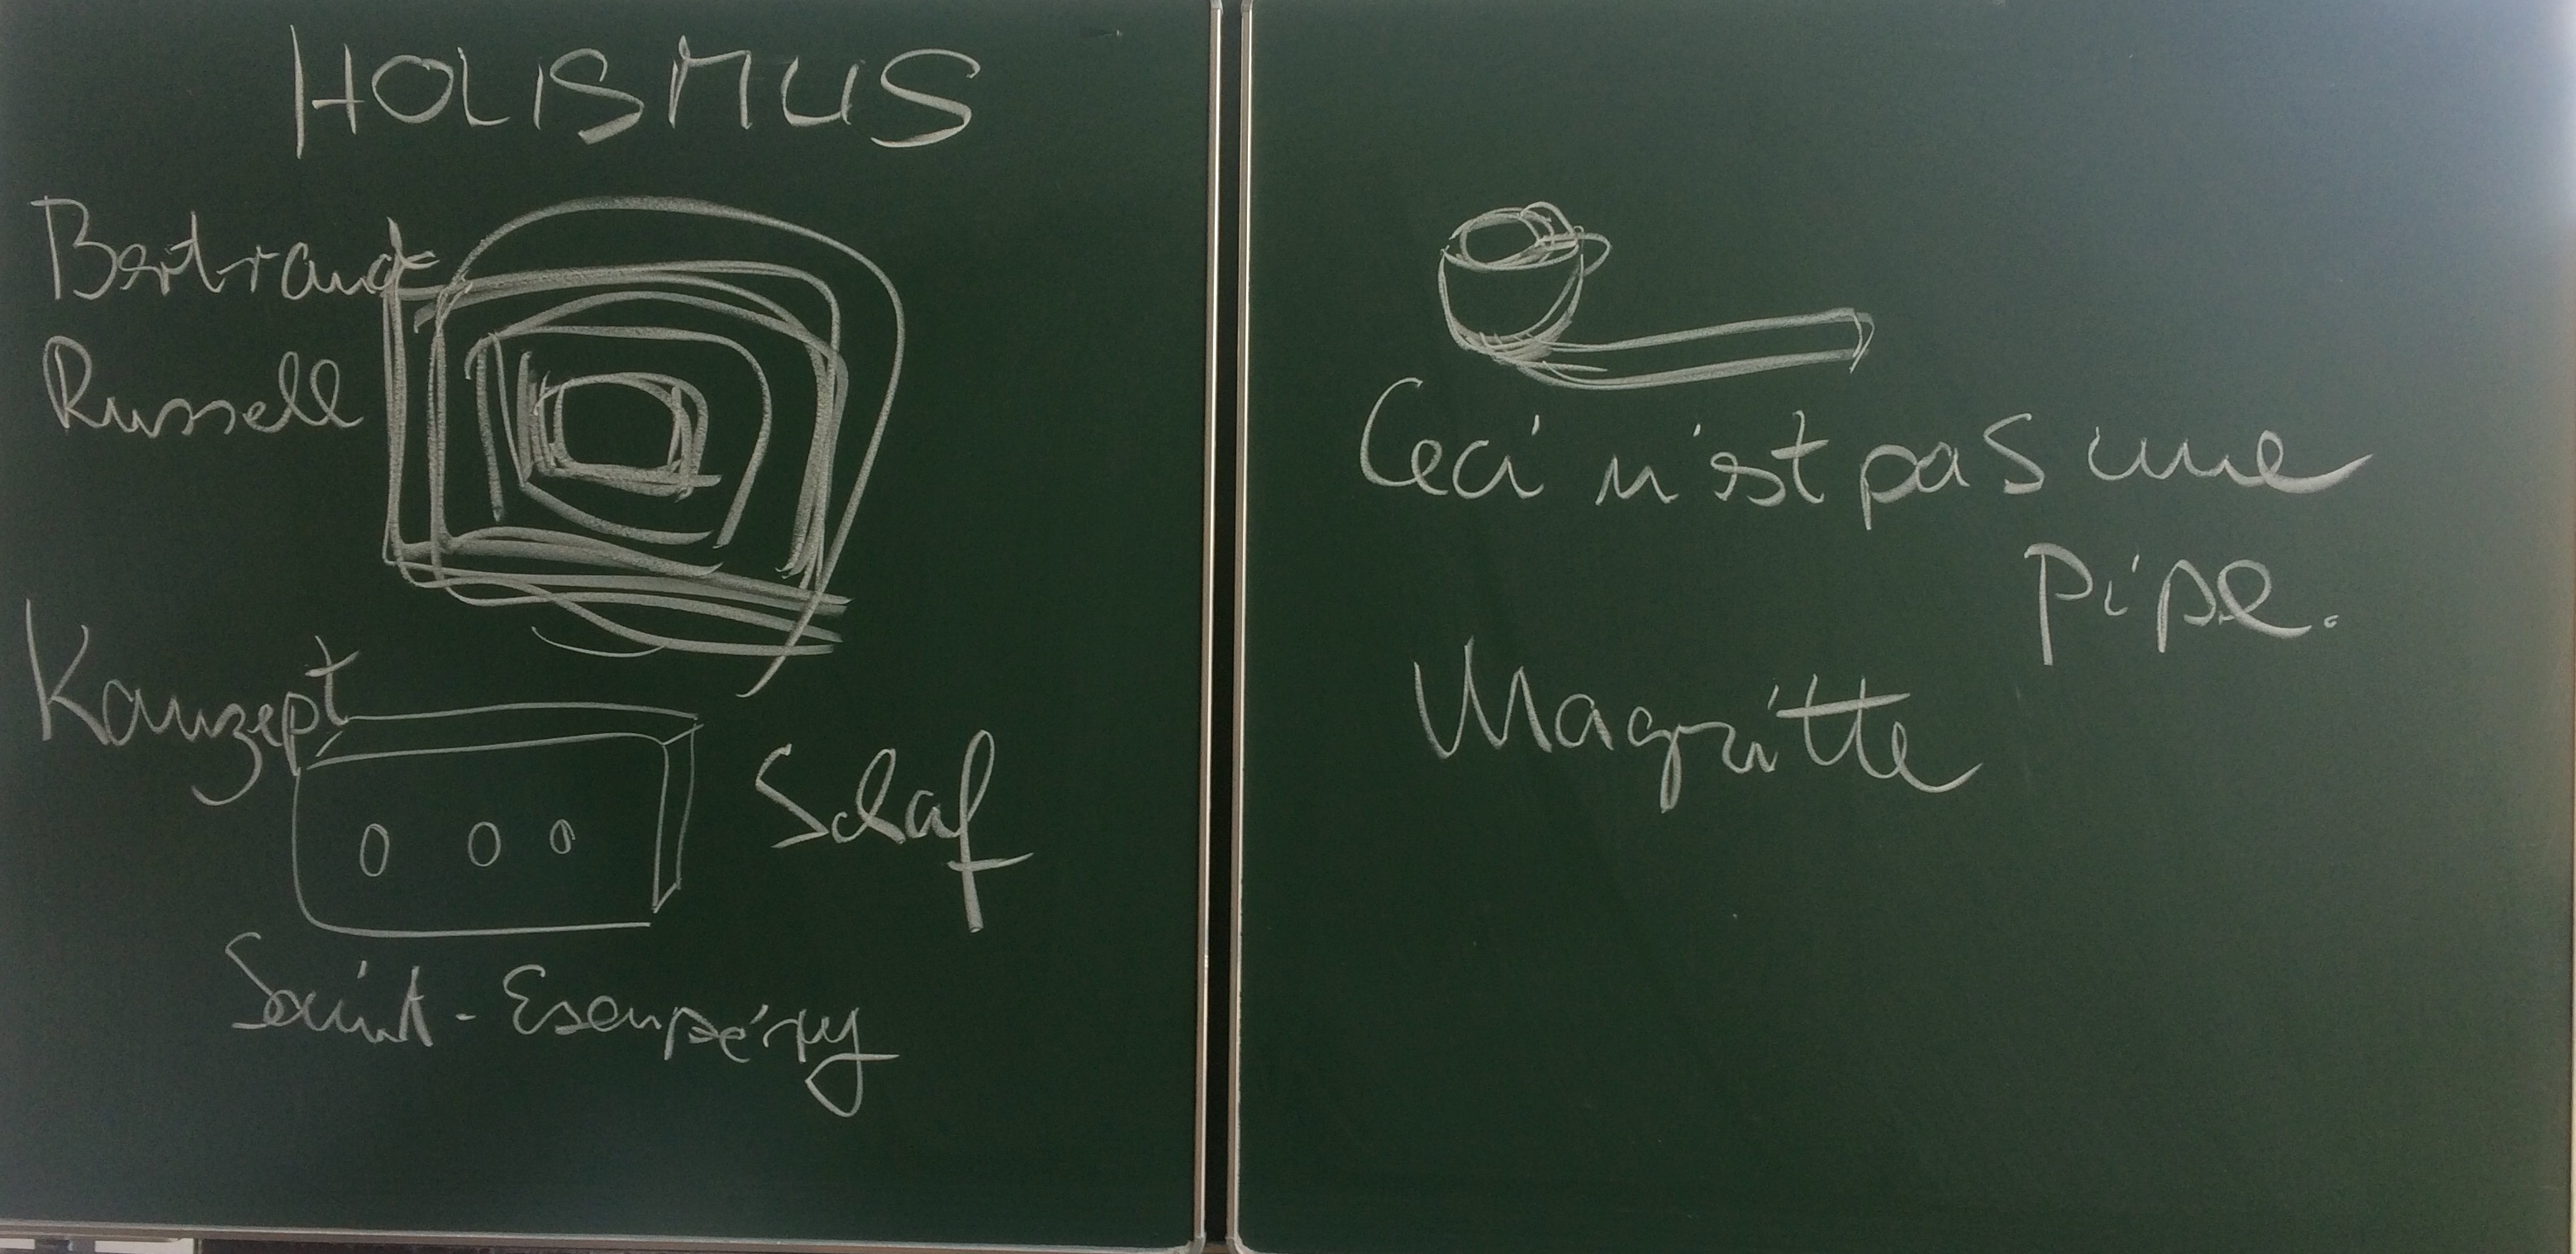 HOLISMUS
Bertrand
Russell
Konzept
Schaf
Saint-Exenpéry
Ceci n'est pas une
pipe.
Magritte